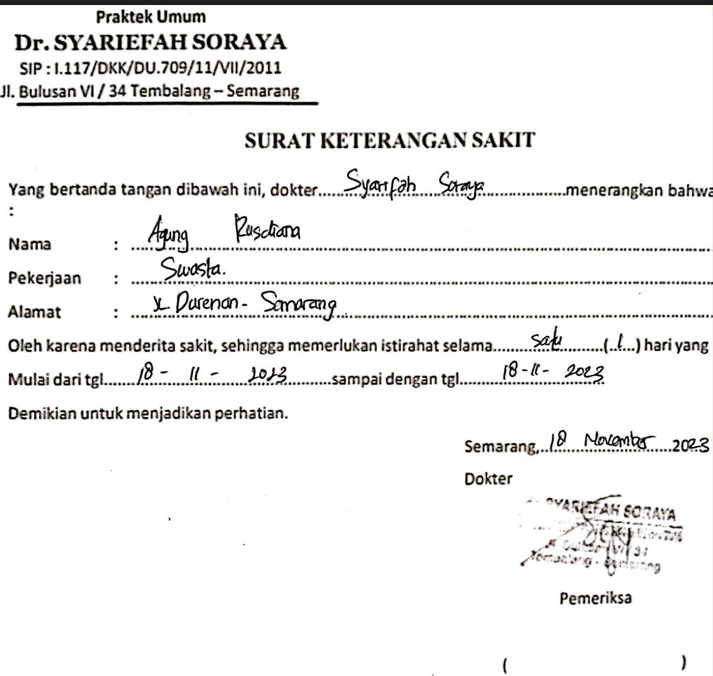 Praktek Umum
Dr. SYARIEFAH SORAYA
SIP : I.117/DKK/DU.709/11/VII/2011
Jl. Bulusan VI / 34 Tembalang – Semarang
SURAT KETERANGAN SAKIT
Yang bertanda tangan dibawah ini, dokter.....Syarifah Soraya...............menerangkan bahwa
:
Nama : ...Agung Rusdiana...............
Pekerjaan : .....Swasta................
Alamat : ...Jl. Durenan - Semarang...............
Oleh karena menderita sakit, sehingga memerlukan istirahat selama.........satu.........(..1...) hari yang
Mulai dari tgl.......18 - 11 - 2023............sampai dengan tgl..........18-11- 2023
Demikian untuk menjadikan perhatian.
Semarang,..18 November.....2023
Dokter
SYARIEFAH SORAYA
Tembalang - Semarang
Pemeriksa
( )